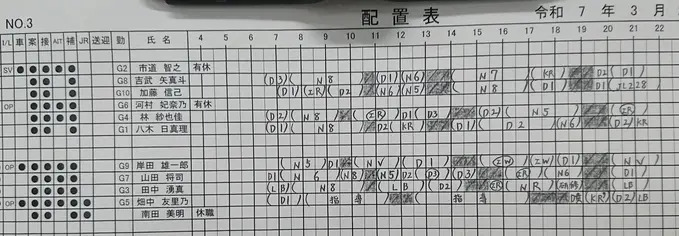 NO.3 配置表 令和 7 年 3 月
I/L 車 案 接 AIT 補 JR 送迎 勤 氏名 4 5 6 7 8 9 10 11 12 13 14 15 16 17 18 19 20 21 22
SV ● ● ● ● ● G2 市道 智之 有休
● ● ● G8 吉武 矢真斗 (D3)( N8 ) (D1)(N6) ( N7 )( KR ) D2 ( D1 )
● ● ● G10 加藤 信己 (D1)(ΣR)( D2 ) (N6)(N5) ( N8 )( D1 ) (D1)
OP ● ● ● ● G6 河村 妃奈乃 有休
● ● ● G4 林 紗也佳 (D2)( N8 ) (ΣR)(D1)(D3 (D2)( N5 ) (ΣR)
● ● G1 八木 日真理 (D1)( N8 ) D2 ( KR ) (D1)( D2 )(N6) (D2) KR
OP ● ● ● ● ● G9 岸田 雄一郎 ( N5 ) D1 ( D1 ) (ΣW)(ΣW)(D1)
● ● ● G7 山田 将司 D1 ( N6 )(N8) (N5) D2 (D3) (D3) (ΣR)( N6 ) ( D1 )
● ● ● G3 田中 湧真 (LB)( N8 ) ( LB )(D2) (ΣR)( NR ) ( LB
OP ● ● ● ● ● ● G5 畑中 友里乃 ( D1 )( 指 導 ) ( 指 導 ) (KR)(D2) LB
● ● ● 南田 美明 休職